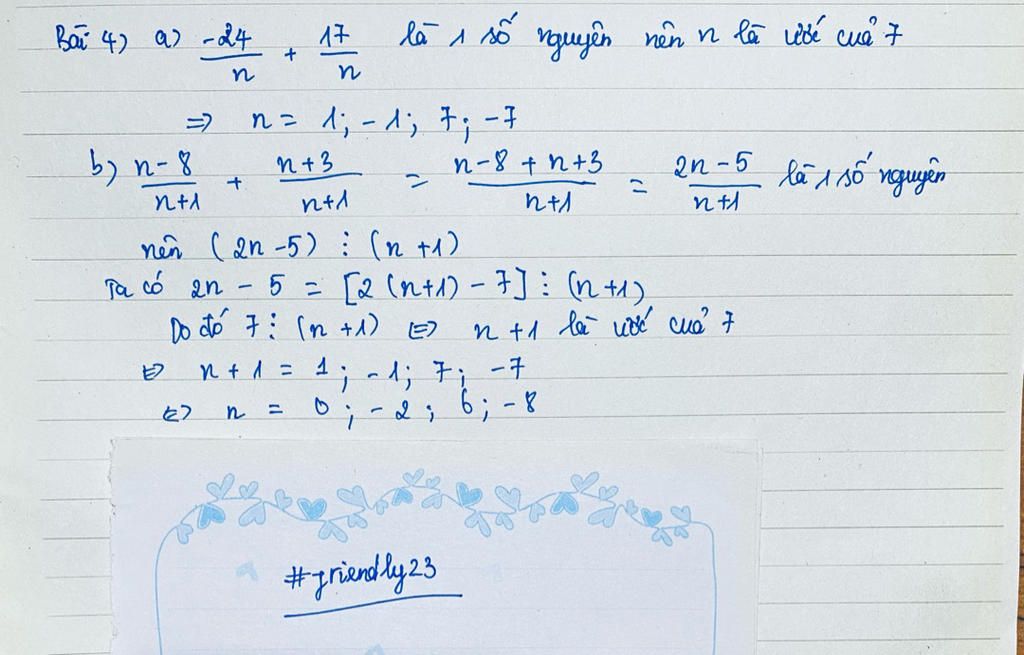 Bài 4) a) -24/n + 17/n là 1 số nguyên nên n là ước của 7
=> n = 1; -1; 7; -7
b) n-8/n+1 + n+3/n+1 = n-8+n+3/n+1 = 2n-5/n+1 là 1 số nguyên
nên (2n-5) ⋮ (n+1)
Ta có 2n - 5 = [2(n+1) - 7] ⋮ (n+1)
Do đó 7 ⋮ (n+1) <=> n+1 là ước của 7
<=> n+1 = 1; -1; 7; -7
<=> n = 0; -2; 6; -8
#friendly23